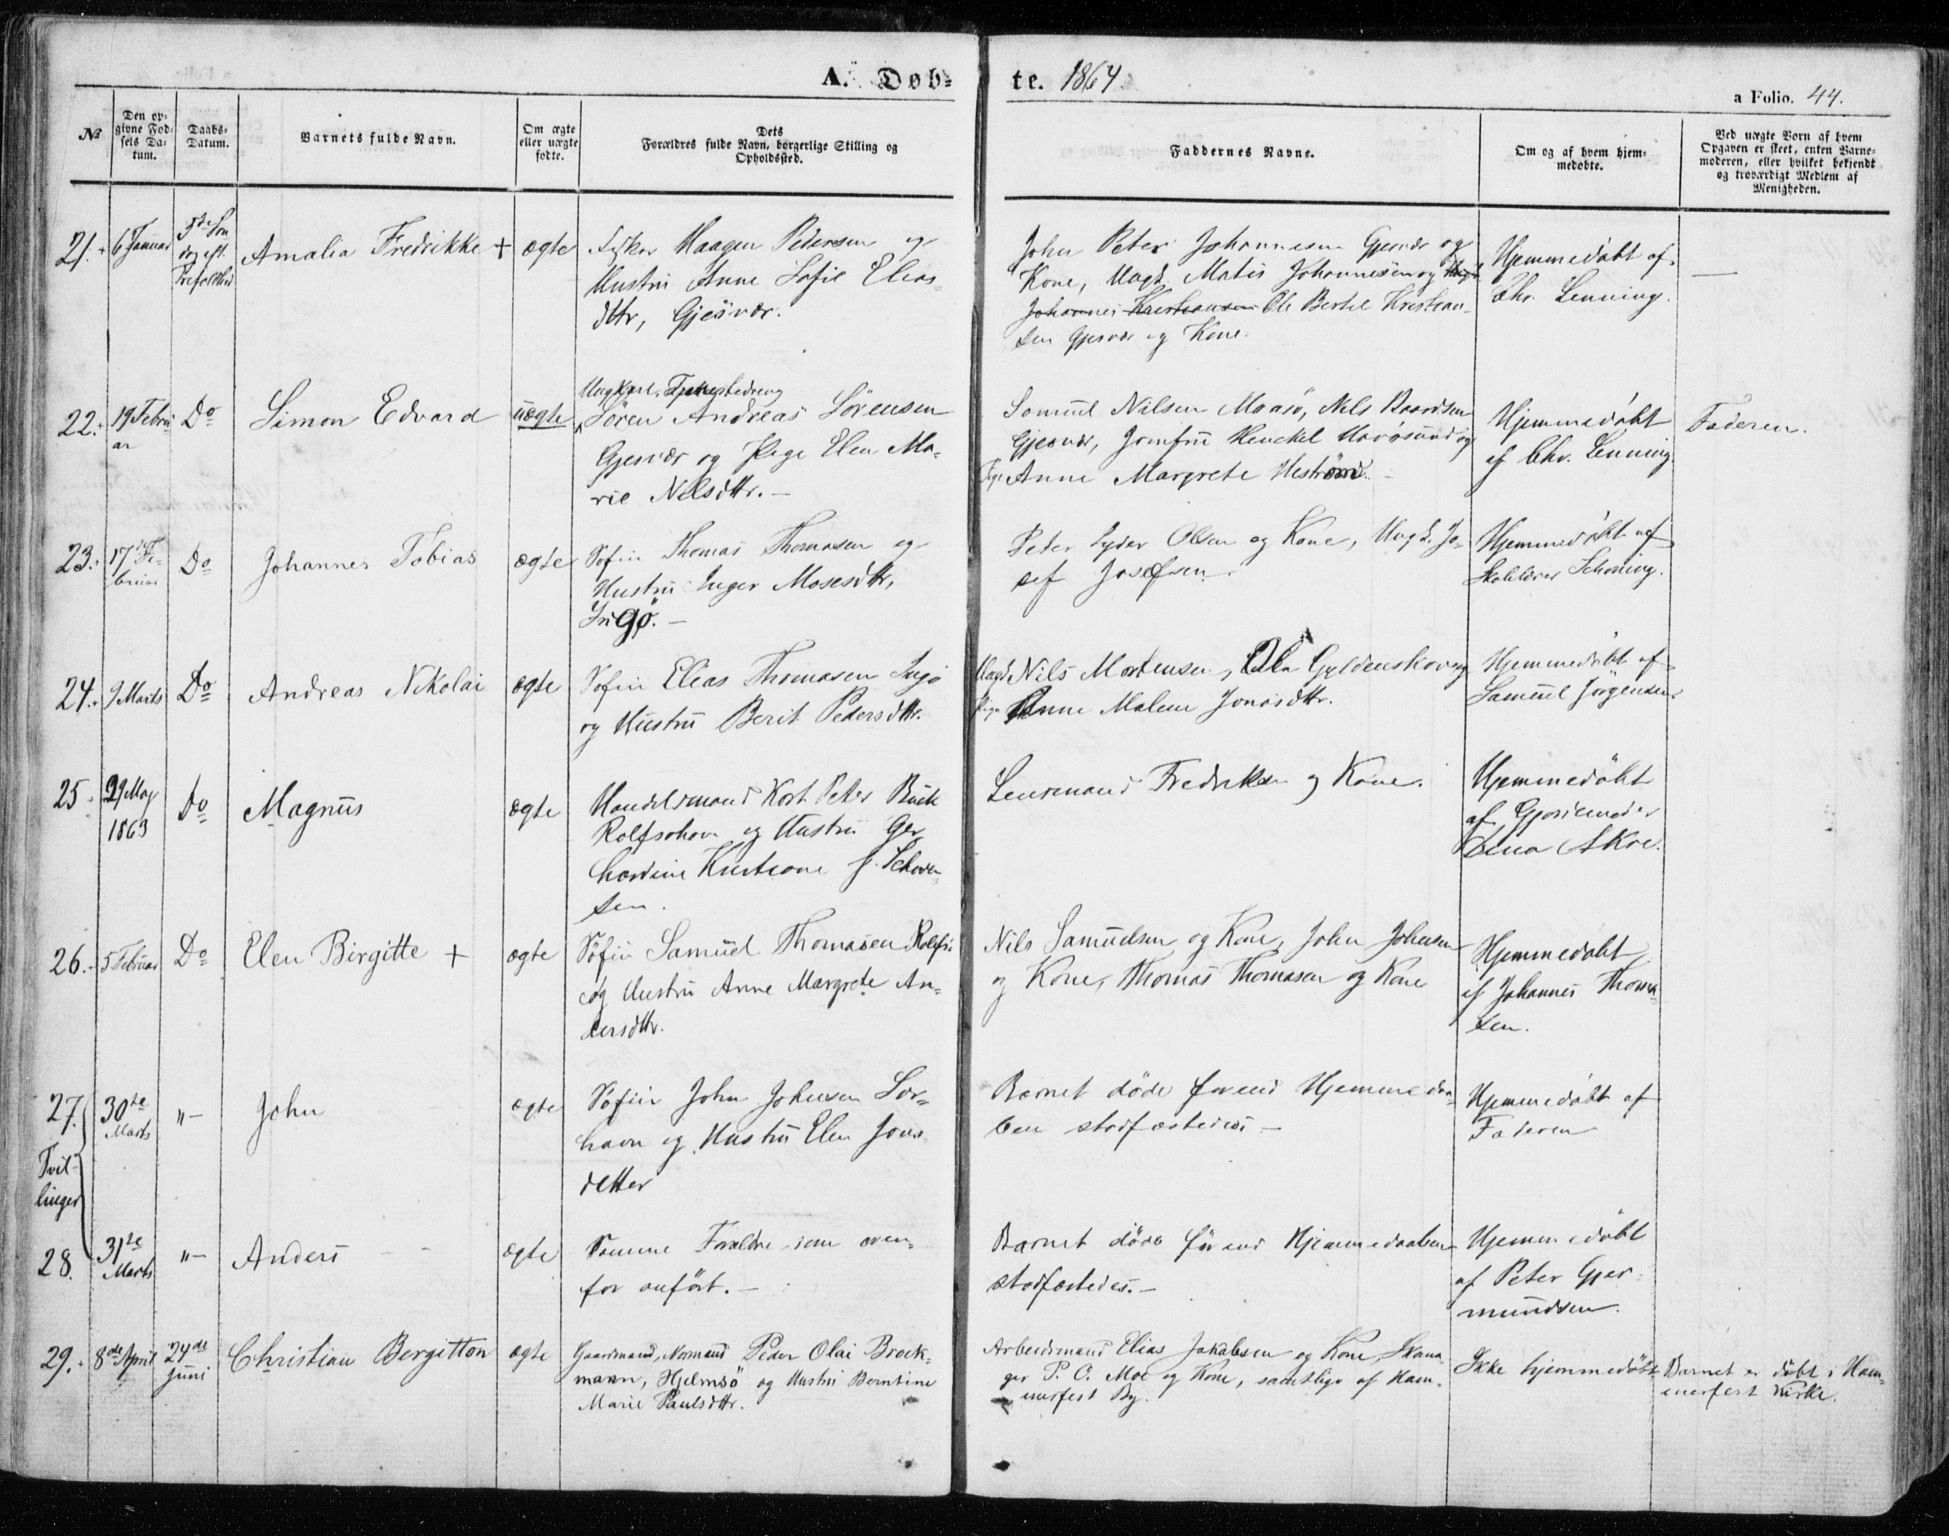 A. Døb-
te. 1864.
a Folio. 44.
No
Den opgivne Fødsels Datum.
Daabs-Datum.
Barnets fulde Navn.
Om ægte eller uægte fødte.
Dets Forældres fulde Navn, borgerlige Stilling og Opholdssted.
Faddernes Navne.
Om og af hvem hjemmedøbte.
Ved uægte Born af hvem Opgaven er skeet, enten Barnemoderen, eller hvilket bekjendt og troværdigt Medlem af Menigheden.
21. 6 Januar
Amalia Fredrikke +
ægte
Fisker Haagen Pedersen og
Hustru Anne Sofie Elias
dttr, Gjesvær.
John Peter Johannesen Gjesvær og
Kone, Ungk. Matis Johannesen og
Johannes Kristiansen Ole Bertel Kristian-
sen Gjesvær og Kone.
Hjemmedøbt af
Chr. Lenning.
—
22. 19 Febru
ar
Do
Simon Edvard
uægte
Ungkarl, Tjenestedreng
Sören Andreas Sörensen
Gjesvær og Pige Elen Ma-
rie Nilsdttr. —
Samuel Nilsen Maasö, Nils Baardsen
Gjesvær, Jomfru Henckel Havösund og
Pige Anne Margrete Heström. -
Hjemmedøbt
af Chr. Lenning
Faderen.
23. 17 Fe-
bruar
Do
Johannes Tobias
ægte
Söfin Thomas Thomasen og
Hustru Inger Mosesdttr,
Ingö. —
Peter Lyder Olsen og Kone, Ungk. Jo-
sef Josefsen.
Hjemmedøbt af
Skolelærer Schöning.
24. 9 Marts
Do
Andreas Nikolai
ægte
Söfin Elias Thomasen Ingö
og Hustru Berit Pedersdttr.
Ungk Nils Mortensen, Gyldenskov og
Pige Anne Malene Jonasdttr.
Hjemmedøbt af
Samuel Jörgensen.
25. 29 May
1863
Do
Magnus
ægte
Handelsmand Kort Peter Buck
Rolfsöhavn og Hustru Ger
hardine Kristiane f.
sen.
Lensmand Fredriksen og Kone.
Hjemmedøbt
af Gjordemoder
26. 5 Februar
Do
Elen Birgitte +
ægte
Söfin Samuel Thomasen Rolfsö
og Hustru Anne Margrete An-
dersdttr.
Nils Samuelsen og Kone, John Johnsen
og Kone, Thomas Thomasen og Kone
Hjemmedøbt
af Johannes Thoma-
sen.
27. 30te
Marts
"—
John
ægte
Söfin John Johnsen Sör-
havn og Hustru Elen Jons
datter
Barnet döde förend Hjemmedaa-
ben stadfæstedes —
Hjemmedøbt af
Faderen
Tvil-
linger
28. 31te
Marts
"—
Anders
ægte
Samme Forældre som oven-
for anfört. —
Barnet döde förend Hjemmedaaben
stadfæstedes. —
Hjemmedøbt
af Peter Gjer-
mundsen.
29. 8de April
24de
Juni
Christian Bergitton
ægte
Gaardmand, Normand Peder Olai Brock-
mann, Hjelmsö og Hustru Berntine
Marie Paulsdttr.
Arbeidsmand Elias Jakobsen og Kone, Skoma-
ger P. C. Moe og Kone, samtlige af Ham-
merfest By.
Ikke hjemmedøbt
Barnet er døbt i Ham-
merfest Kirke.